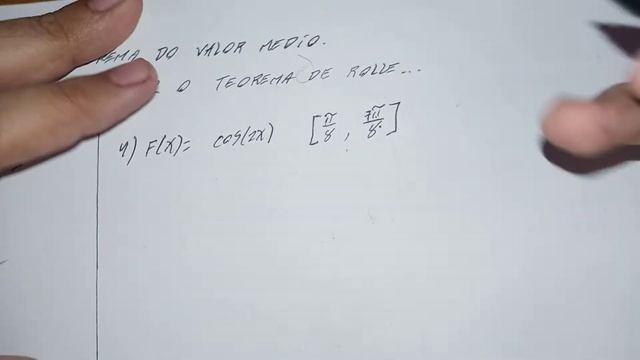 DO VALOR MEDIO.
O TEOREMA DE ROLLE...
4) F(X)= COS(2X) [π/8, 7π/8]